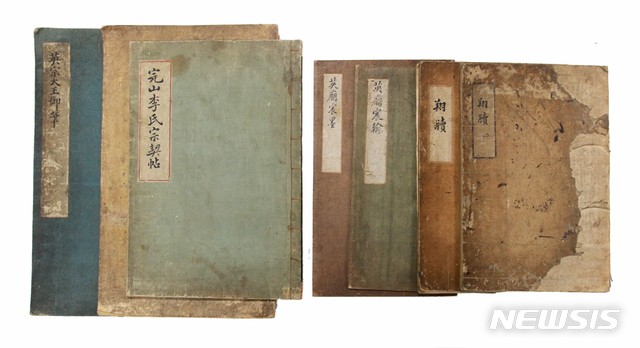 英宗大王御筆
完山李氏宗契帖
英廟宸墨
英廟宸翰
翔牘
翔牘
NEWSIS